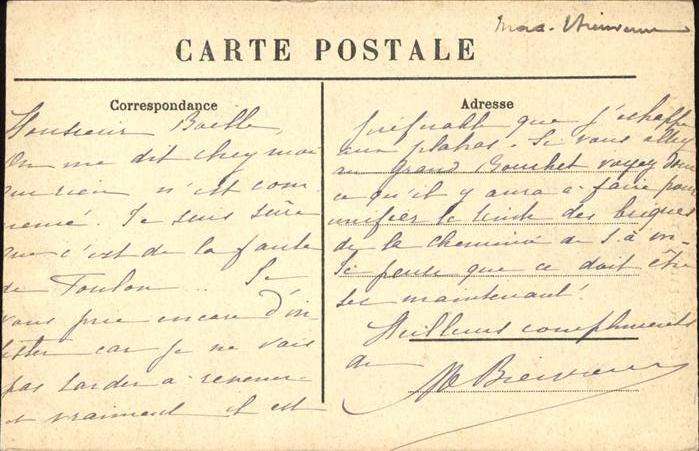 CARTE POSTALE
Correspondance
Monsieur
On me dit chez moi
que rien n'est com-
mencé. Je suis sûre
que c'est de la faute
de Toulon... Je
vous prie encore d'in-
sister car je ne vais
pas tarder à revenir
et vraiment il est
Adresse
préférable que j'échappe
aux plâtras. Si vous allez
au Grand voyez donc
ce qu'il y aura à faire pour
unifier la teinte des briques
de la cheminée de S. à m-
Je pense que ce doit être
sec maintenant!
Meilleurs compliments
de